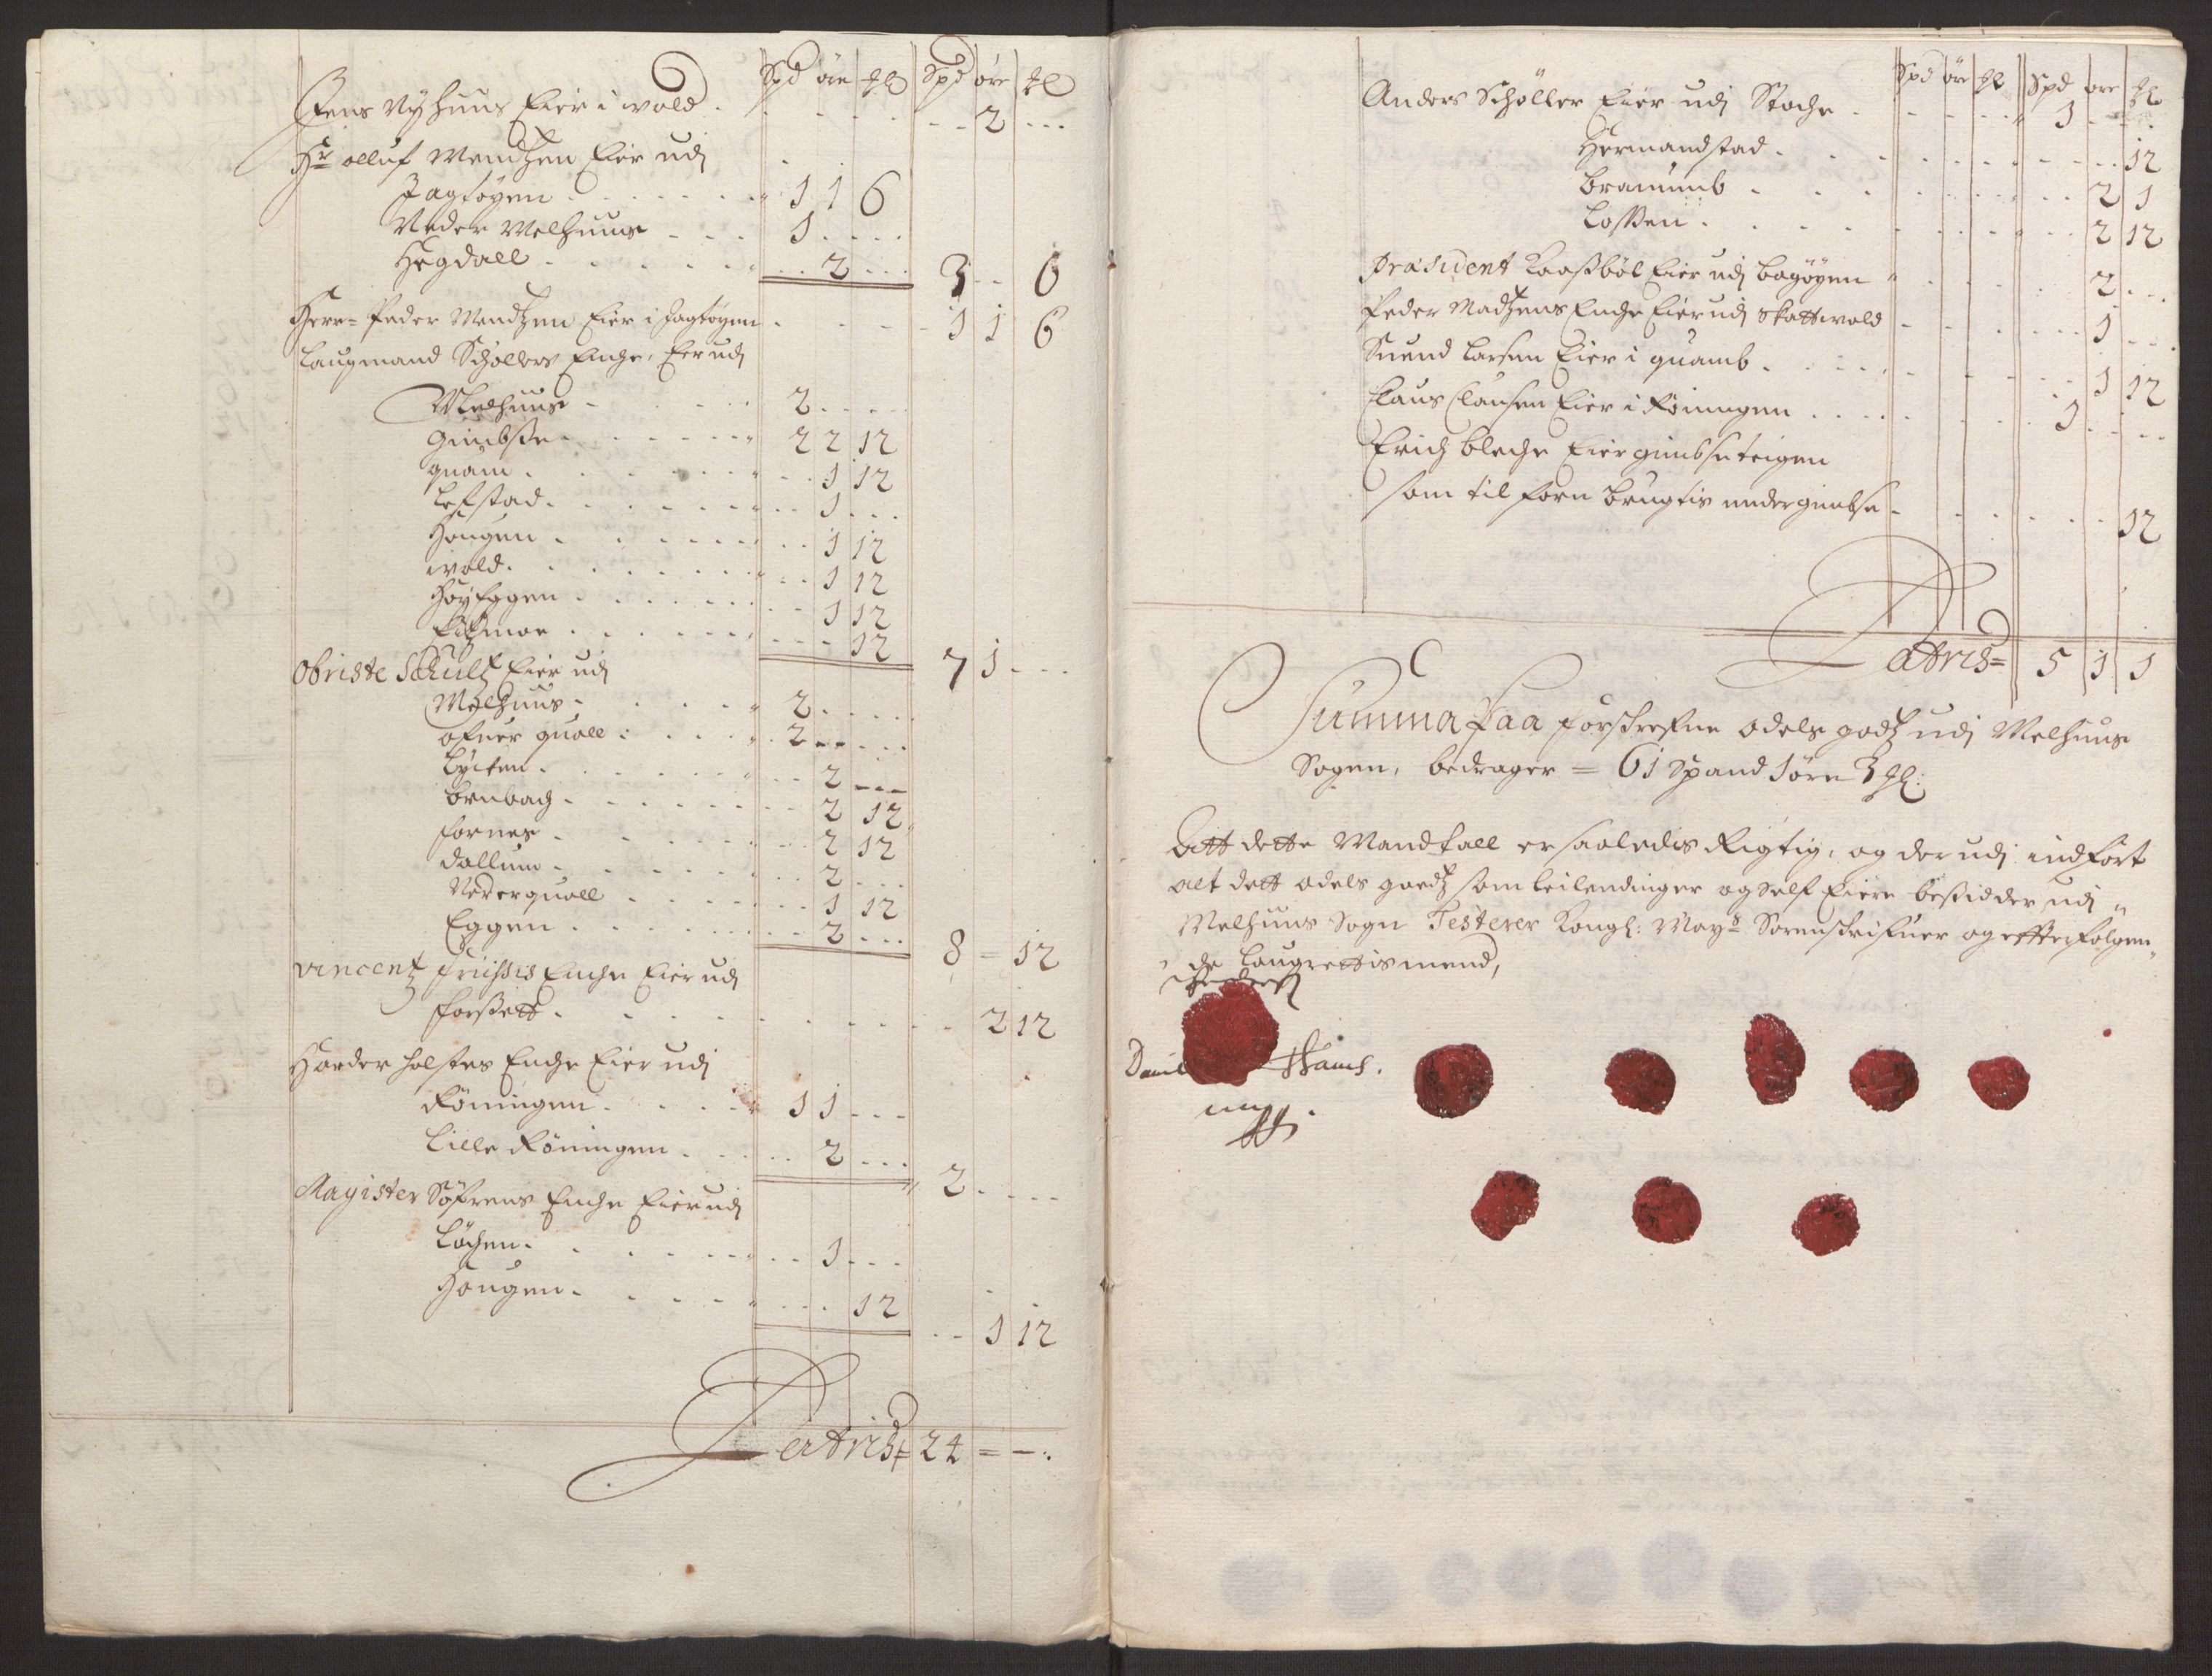 Spd øre ℔ Spd øre ℔
Jens Nyhuus Eier i wold . - - 2 - - -
Hr olluf Mentzen Eier udj
Jagtøyen . . . . 1 1 6
Neder Melhuus - - - 1 . . . .
Hegdall . . . . - - 2 - - - 3 - - 6
Herr= Peder Mentzen Eier i Jagtøyen . - - - 1 1 6
Laugmand Schøllers Enche, Eier udj
Melhuus - 2 - - - -
Gimbsse . . . 2 2 12
quam . . . - - 1 12
Lefstad . . . - - 1 - - -
Hougen . . . - - 1 12
wold . . . - - 1 12
Høyeggen . . . - - 1 12
. . . - - - 12 7 1 - - -
Obriste Schultz Eier udj
Melhuus . . . 2 . . . .
ofuer quall . . . 2 - - - - -
Lycken . . . - - 2 - - -
Brubach . . . - - 2 12
fornes . . . - - 2 12
Dallum . . . - - 2 - - -
Nederquall . . . - - 1 12
Eggen . . . - - 2 - - - 8 = 12
Vincentz Enche Eier udj
forsett . . . - - 2 12
Harder holstes Enche Eier udj
Røningen . . . 1 1 - - -
Lille Røningen . . . 2 - - - 2 . - - -
Magister Søfrens Enche Eier udj
Løchen . . . - - 1 - - -
Hougen . . . - - - 12 - - 1 12
Latris = 24 = - .
Spd øre ℔ Spd øre ℔
Anders Schøller Eier udj Stoche . - - - 1 - - -
Hermandstad . . . - - - 12
Bramumb . . . - - 2 1
Lossen . . . - - 2 12
Præsident Kaassbøl Eier udj Bagøyen . . . 2 - - -
Peder Madtzens Enche Eier udj Skattwold - - - 1 - - -
Suend Larsen Eier i quamb . . . 1 12
Claus Clausen Eier i Røningen . . . 1 - - - -
Erich Bleche Eier gimbseteigen
som til forn brugtis under gimbse - . . . 12
Latris = 5 1 1
Summa Paa forskrefne odels godtz udj Melhuus
Sogen, bedrager = 61 Spand 1 øre 3 ℔:
Att dette Mandtall er saaledis Rigtig, og der udj indført
alt dett odels goedtz som leilendinger og self Eiere besidder udj
Melhuus Sogn Testerer Kongl: Mayts Sorenskrifuer og effterfølgen
de Laugrettismend,
Daniel